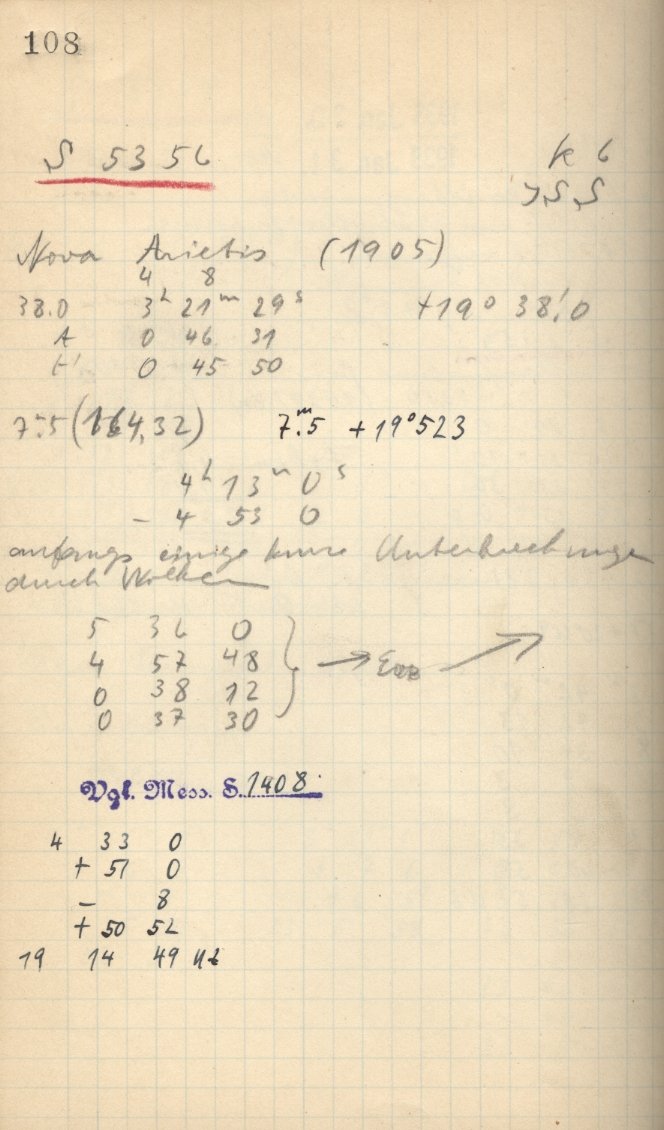 108
S 5356 K 6
JSS
Nova Arietis (1905)
4 8
38.0 3ʰ 21ᵐ 29ˢ +19° 38!0
A 0 46 31
t' 0 45 50
7ᵐ.5 (164,32) 7ᵐ.5 +19°523
4ʰ 13ᵐ 0ˢ
- 4 53 0
anfangs einige kurze Unterbrechungen
durch Wolken
5 36 0
4 57 48
0 38 12
0 37 30
Vgl. Mess. S. 1408
4 33 0
+ 51 0
- 8
+ 50 52
19 14 49